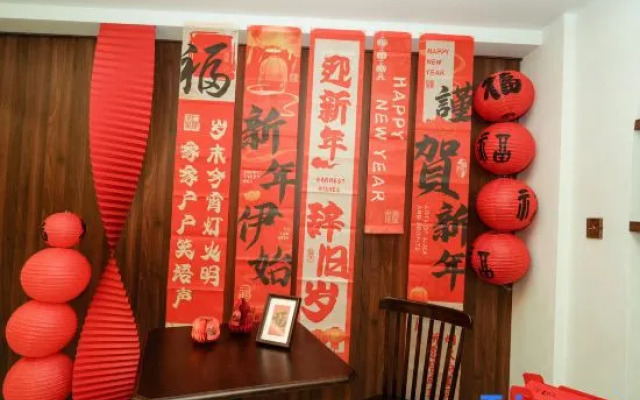 福
岁末今宵灯火明
家家户户笑语声
新年伊始
迎新年
辞旧岁
HAPPY
NEW YEAR
HAPPY
NEW YEAR
謹賀新年
福
福
福
福